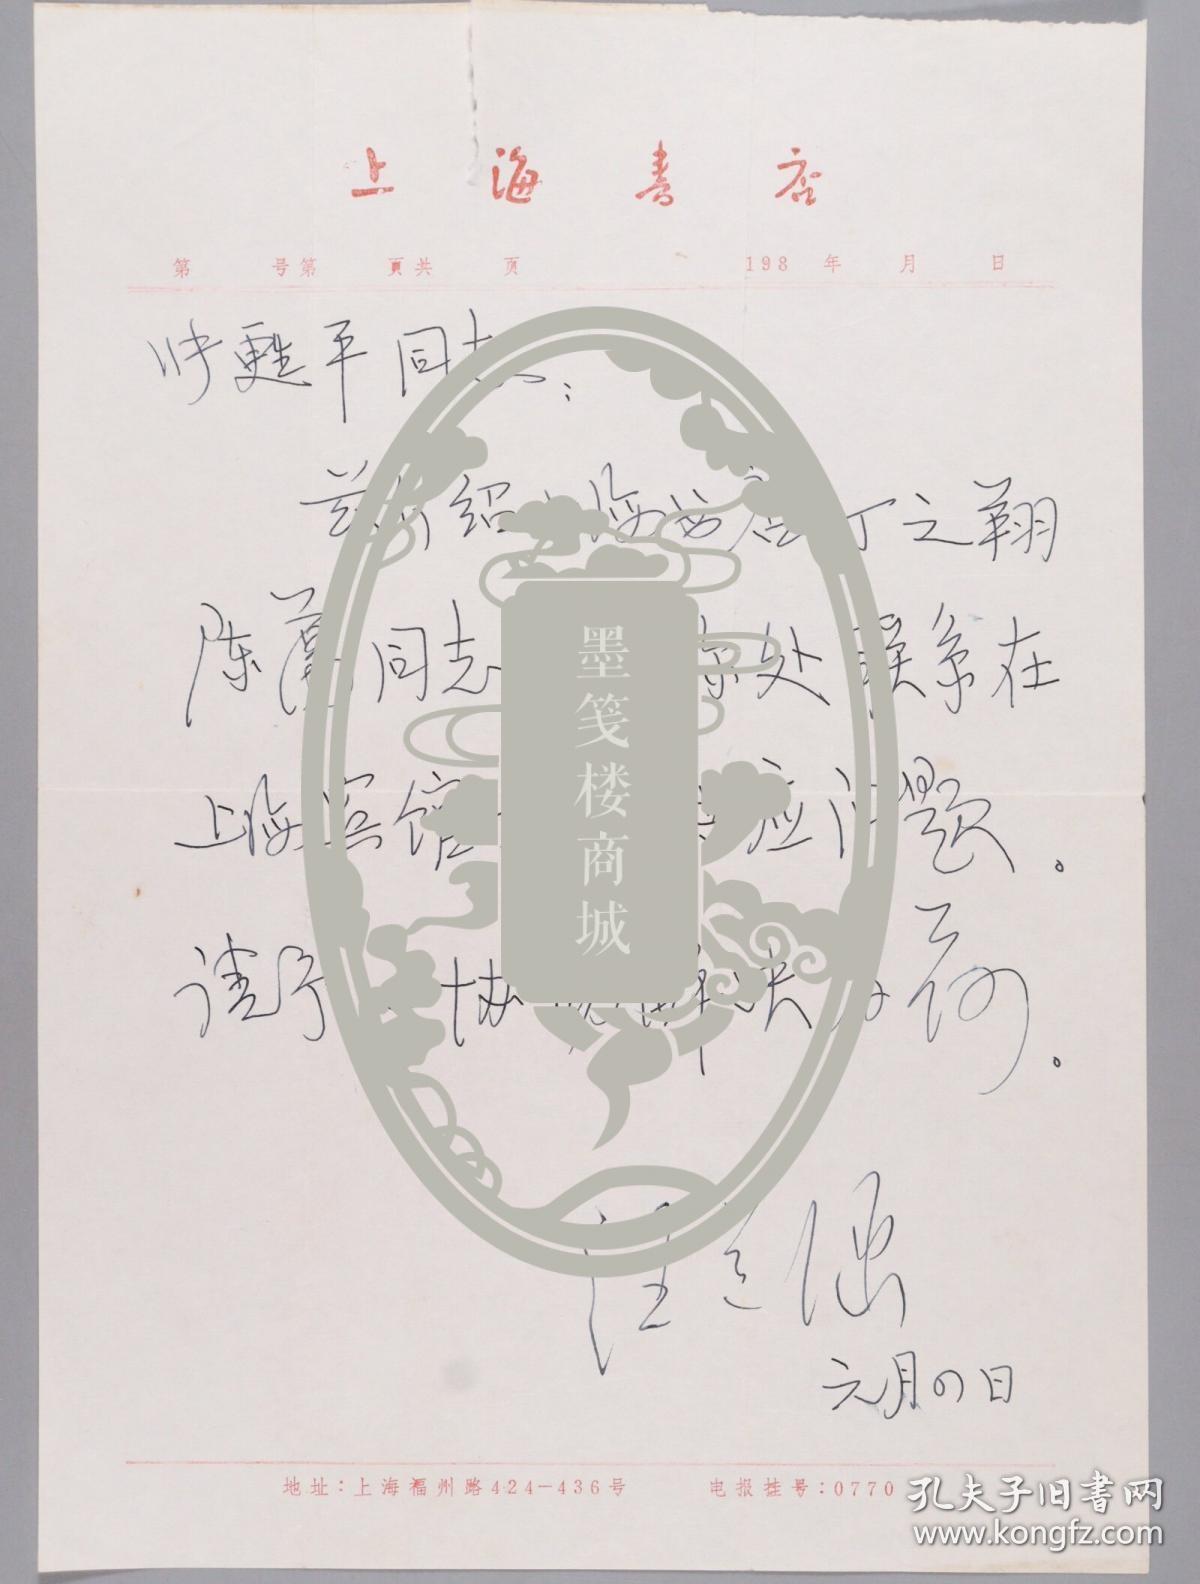 上海书店
第 号第 頁共 页 198 年 月 日
甦平同志：
兹介绍上海书店丁之翔
陈 同志 处联系在
上海宾馆 应问题。
请予 协 解决为荷。
汪道涵
元月四日
地址：上海福州路424-436号 电报挂号：0770
墨笺楼商城
孔夫子旧书网
www.kongfz.com